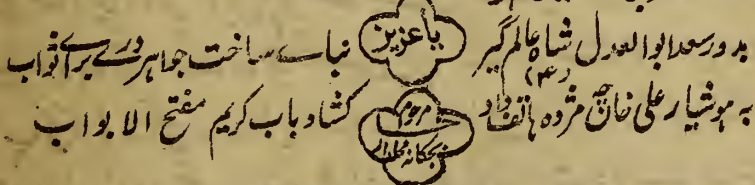 بدور سعد ابو العدل شاہ عالم گیر یا عزیز نباے ساخت جواہر ورے براے ثواب
(۴)
بہ ہوشیار علی خان چہ مژدہ ہاتف داد مرحوم کشاد باب کریم مفتح الابواب